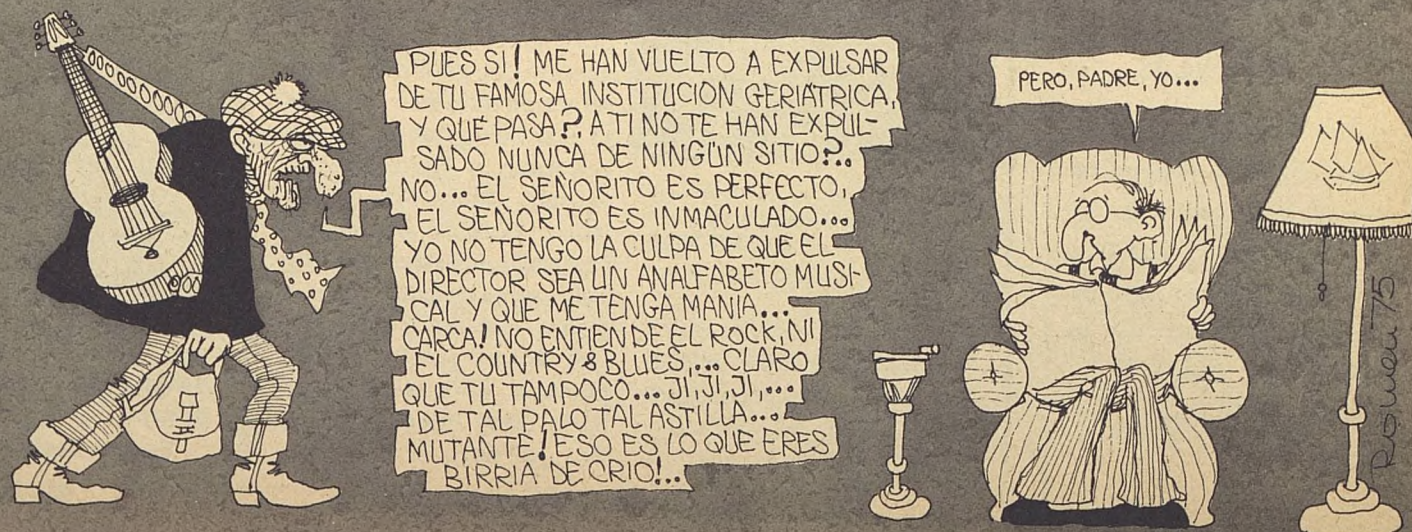 PUES SI! ME HAN VUELTO A EXPULSAR
DE TU FAMOSA INSTITUCION GERIÁTRICA,
Y QUÉ PASA?, A TI NO TE HAN EXPUL-
SADO NUNCA DE NINGÚN SITIO?..
NO... EL SEÑORITO ES PERFECTO,
EL SEÑORITO ES INMACULADO...
YO NO TENGO LA CULPA DE QUE EL
DIRECTOR SEA UN ANALFABETO MUSI-
CAL Y QUE ME TENGA MANIA...
CARCA! NO ENTIENDE EL ROCK, NI
EL COUNTRY & BLUES,... CLARO
QUE TU TAMPOCO... JI, JI, JI,...
DE TAL PALO TAL ASTILLA...
MUTANTE! ESO ES LO QUE ERES
BIRRIA DE CRIO!..
PERO, PADRE, YO...
75